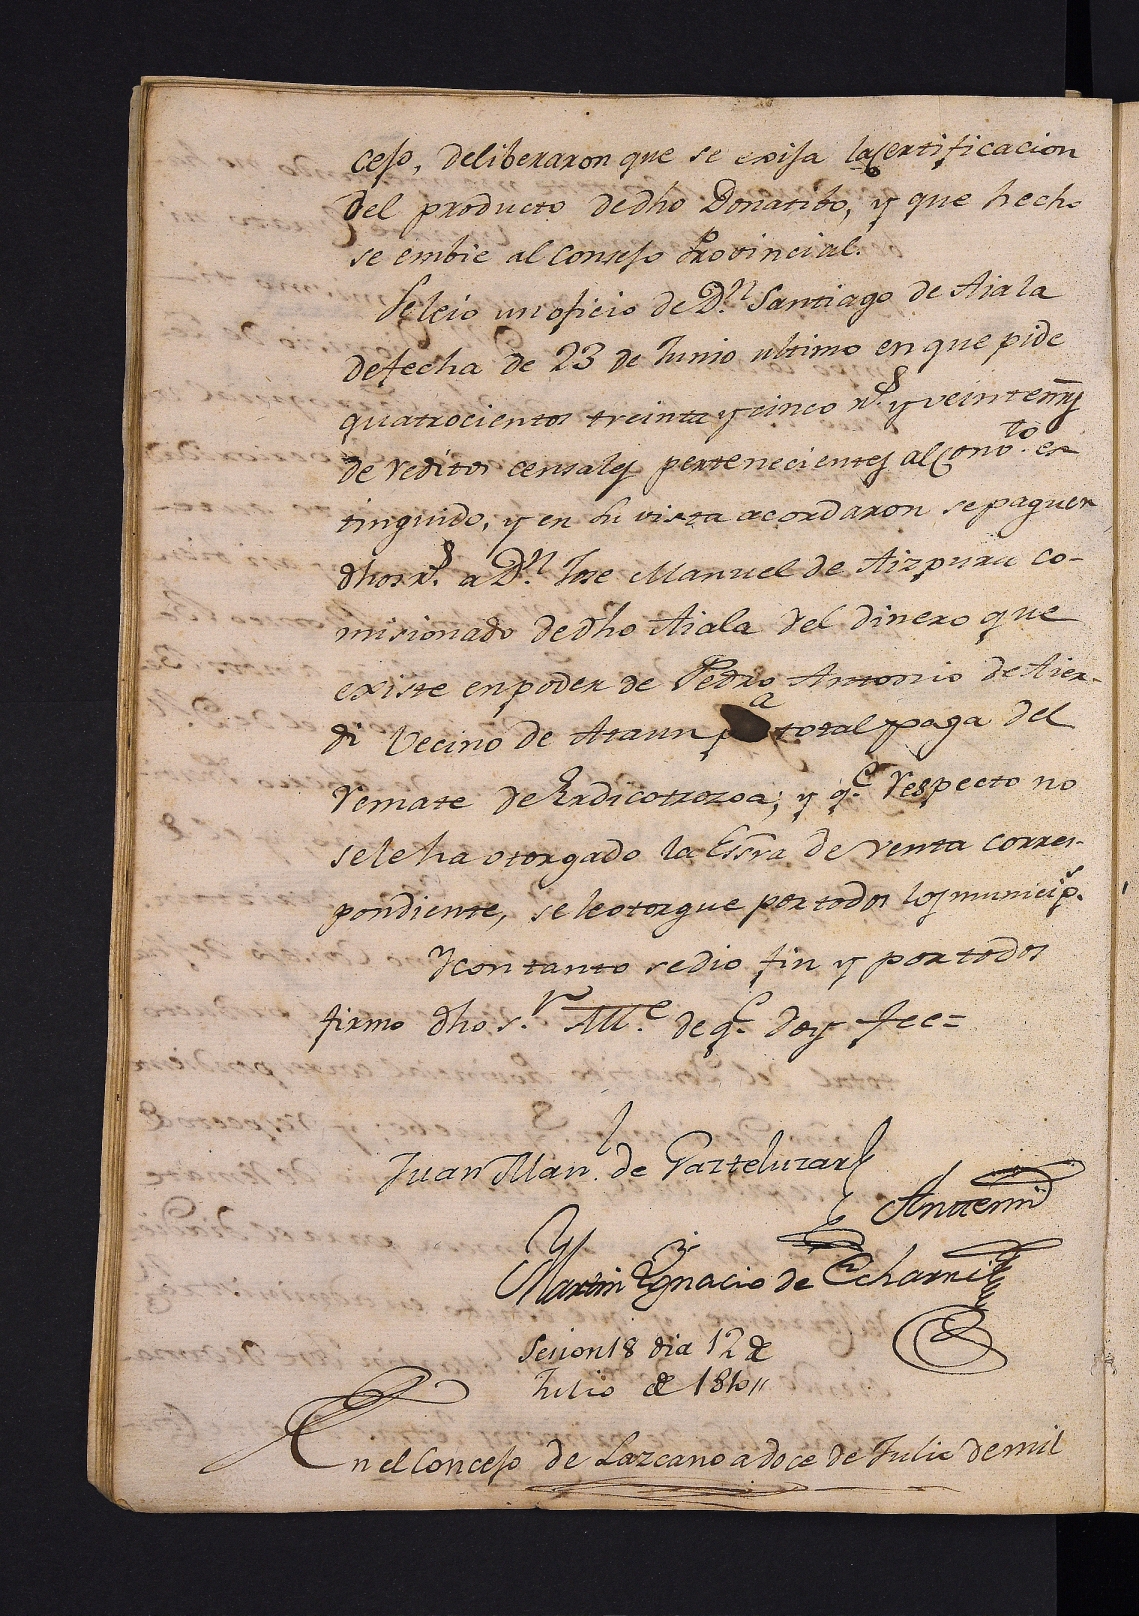 cejo, deliberaron que se exija la Certificacion
del producto de dho Donatibo, y que hecho
se embie al Consejo Provincial.
Se leio un oficio de Dn. Santiago de Aiala
de fecha de 23 de Junio ultimo en que pide
quatrocientos treinta y cinco rs. y veinte mrs
de reditos censales pertenecientes al Convto. ex
tinguido; y en su vista acordaron se paguen
dhos rs. a Dn. Jose Manuel de Aizpuru co-
misionado de dho Aiala del dinero que
existe en poder de Pedro Antonio de Aier-
di Vecino de Ataun pa total paga del
remate de Erdicotrozoa; y qe. respecto no
se le ha otorgado la Essra de venta corres-
pondiente, se le otorgue por todos los municips.
Y con tanto se dio fin y por todos
firmo dho sr. Alle. de qe. doy fee=
Juan Manl. de Garteluzar
Antemi
Martin Ygnacio de Echarri
Sesion 18 dia 12 de
Julio de 1810 "
En el Concejo de Lazcano a doce de Julio de mil